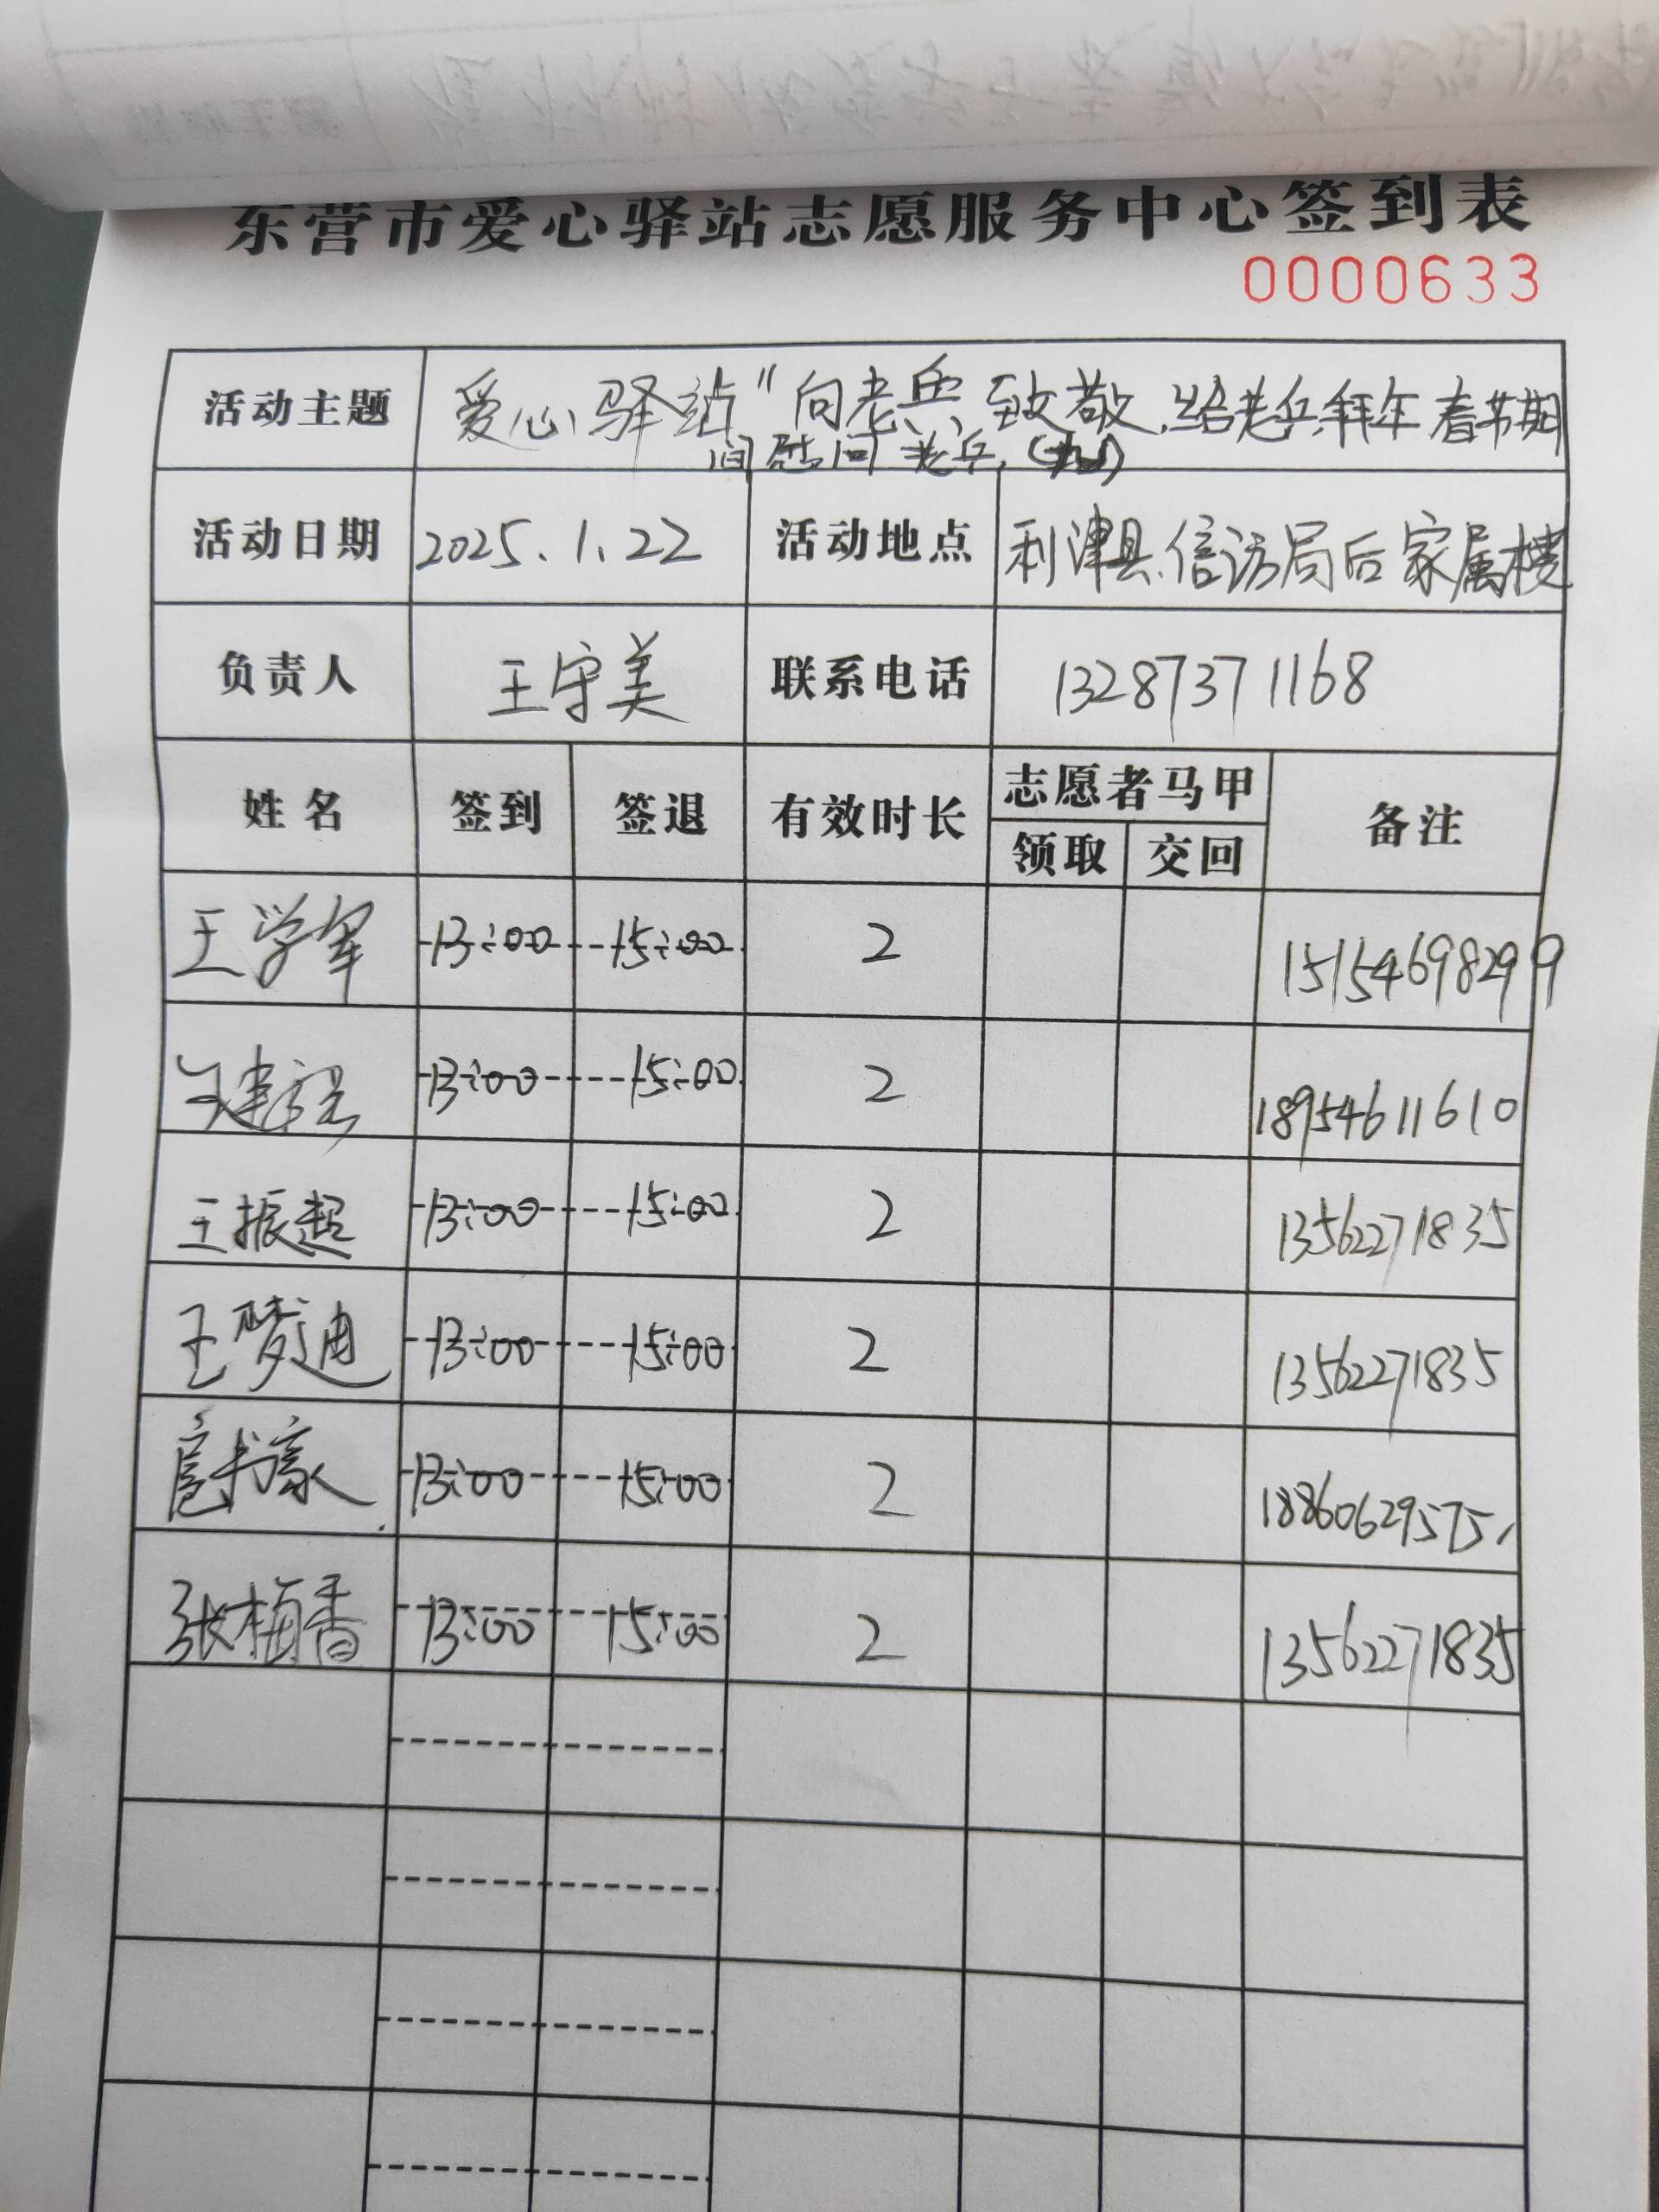 东营市爱心驿站志愿服务中心签到表
0000633
活动主题 爱心驿站"向老兵致敬,给老兵拜年春节期
间慰问老兵,
活动日期 2025.1.22 活动地点 利津县信访局后家属楼
负责人 王守美 联系电话 13287371168
姓名 签到 签退 有效时长 志愿者马甲 备注
领取 交回
王学军 13:00 15:00 2 15154698299
13:00 15:00 2 18954611610
王振超 13:00 15:00 2 13562271835
王梦迪 13:00 15:00 2 13562271835
扈书家 13:00 15:00 2 18860629575
张梅香 13:00 15:00 2 13562271835